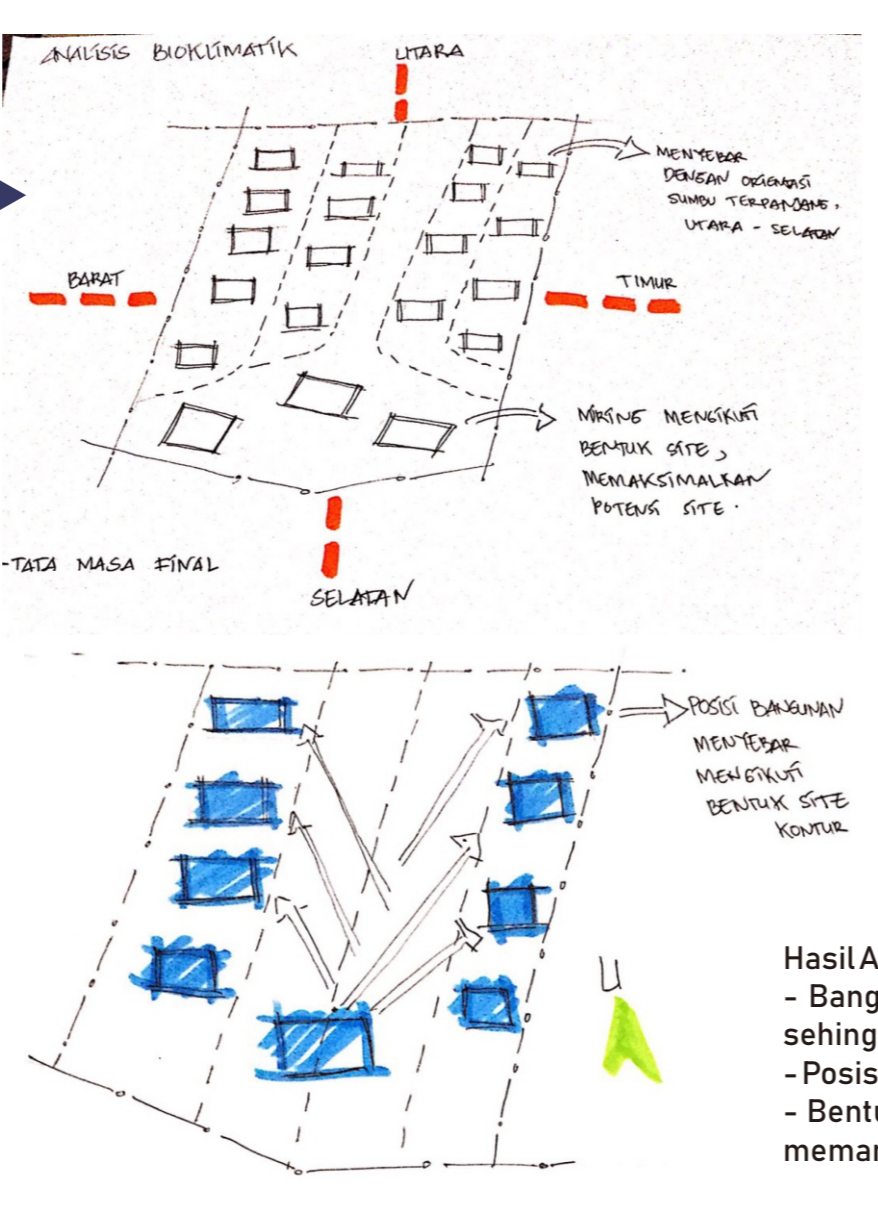 ANALISIS BIOKLIMATIK
UTARA
MENYEBAR
DENGAN ORIENTASI
SUMBU TERPANJANG,
UTARA - SELATAN
BARAT
TIMUR
MIRING MENGIKUTI
BENTUK SITE,
MEMAKSIMALKAN
POTENSI SITE.
-TATA MASA FINAL
SELATAN
POSISI BANGUNAN
MENYEBAR
MENGIKUTI
BENTUK SITE
KONTUR
U
Hasil A
- Bang
sehing
- Posis
- Bentu
meman